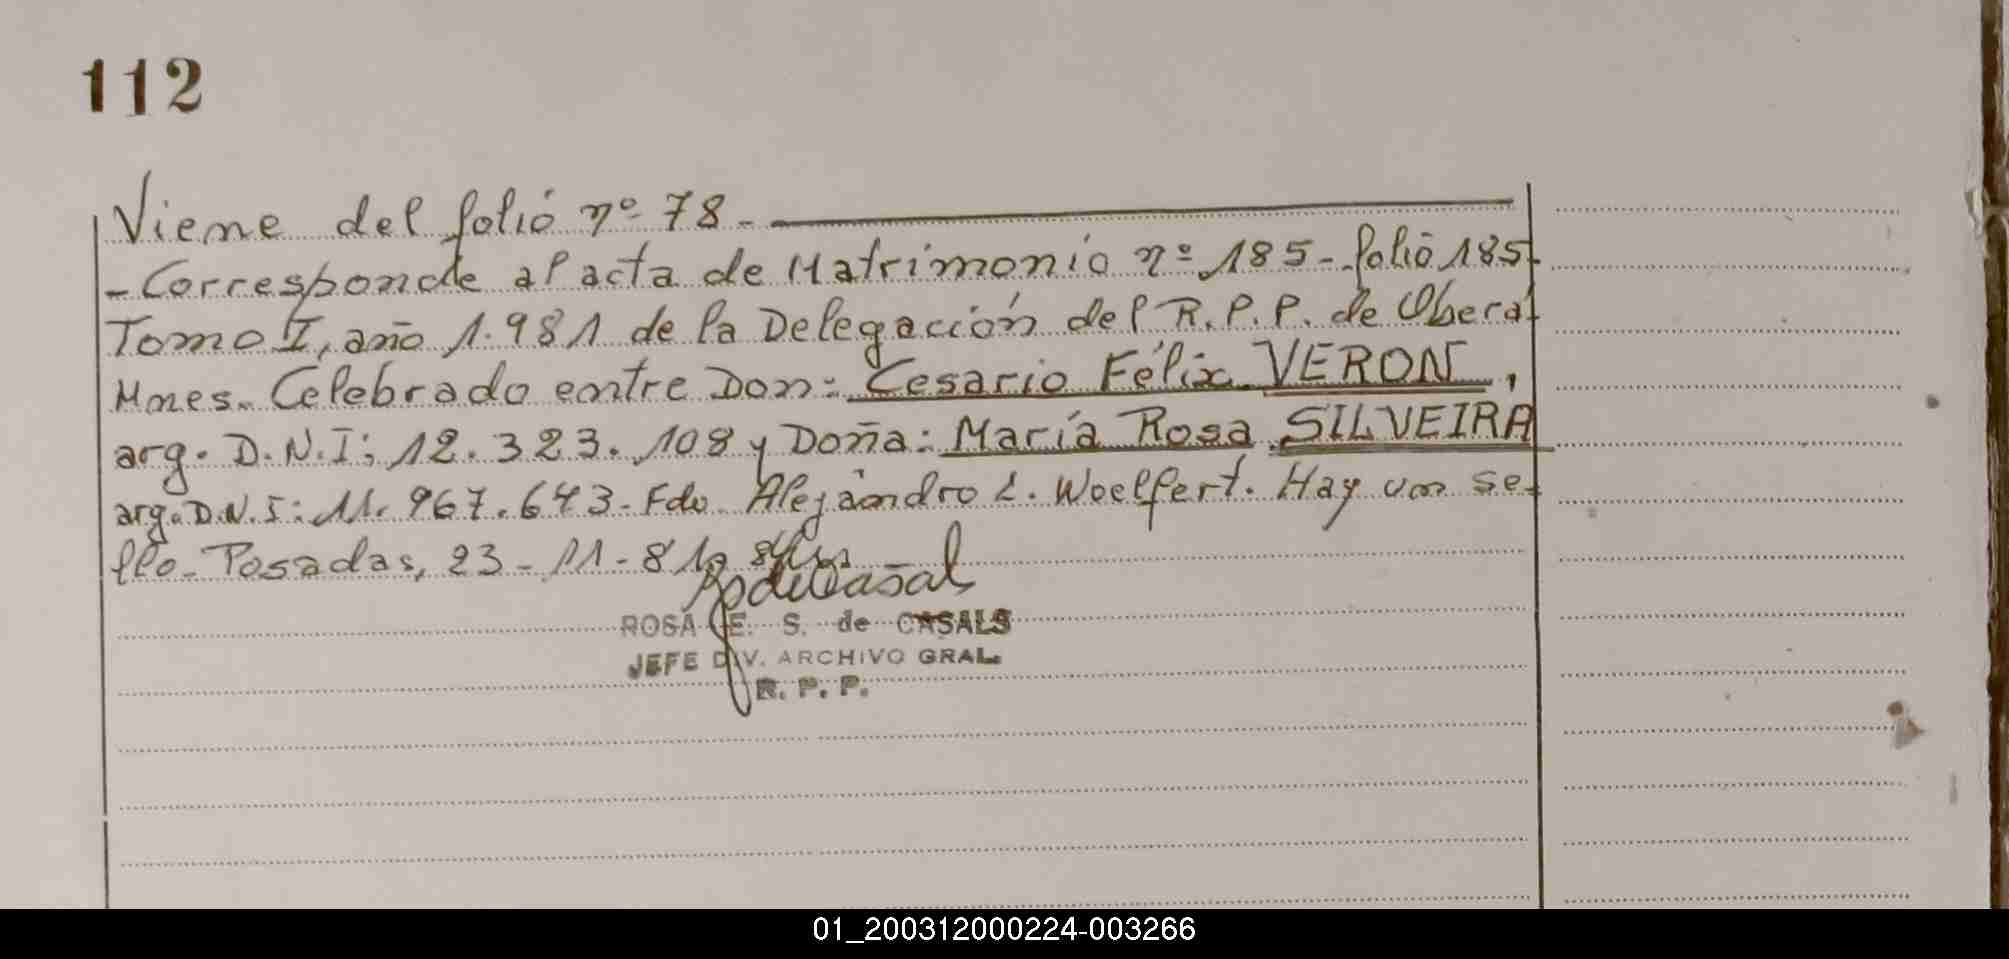 112
Viene del folio nº 78.-
- Corresponde al acta de Matrimonio nº 185 - folio 185-
Tomo I, año 1.981 de la Delegación del R.P.P. de Oberá-
Mnes. Celebrado entre Don: Cesario Félix VERON,
arg. D.N.I: 12.323.108 y Doña: María Rosa SILVEIRA
arg. D.N.I: 11.967.643- Fdo. Alejandro L. Woelfert. Hay un se-
llo- Posadas, 23-11-81
ROSA E. S. de CASALS
JEFE DIV. ARCHIVO GRAL.
R. P. P.
01_200312000224-003266